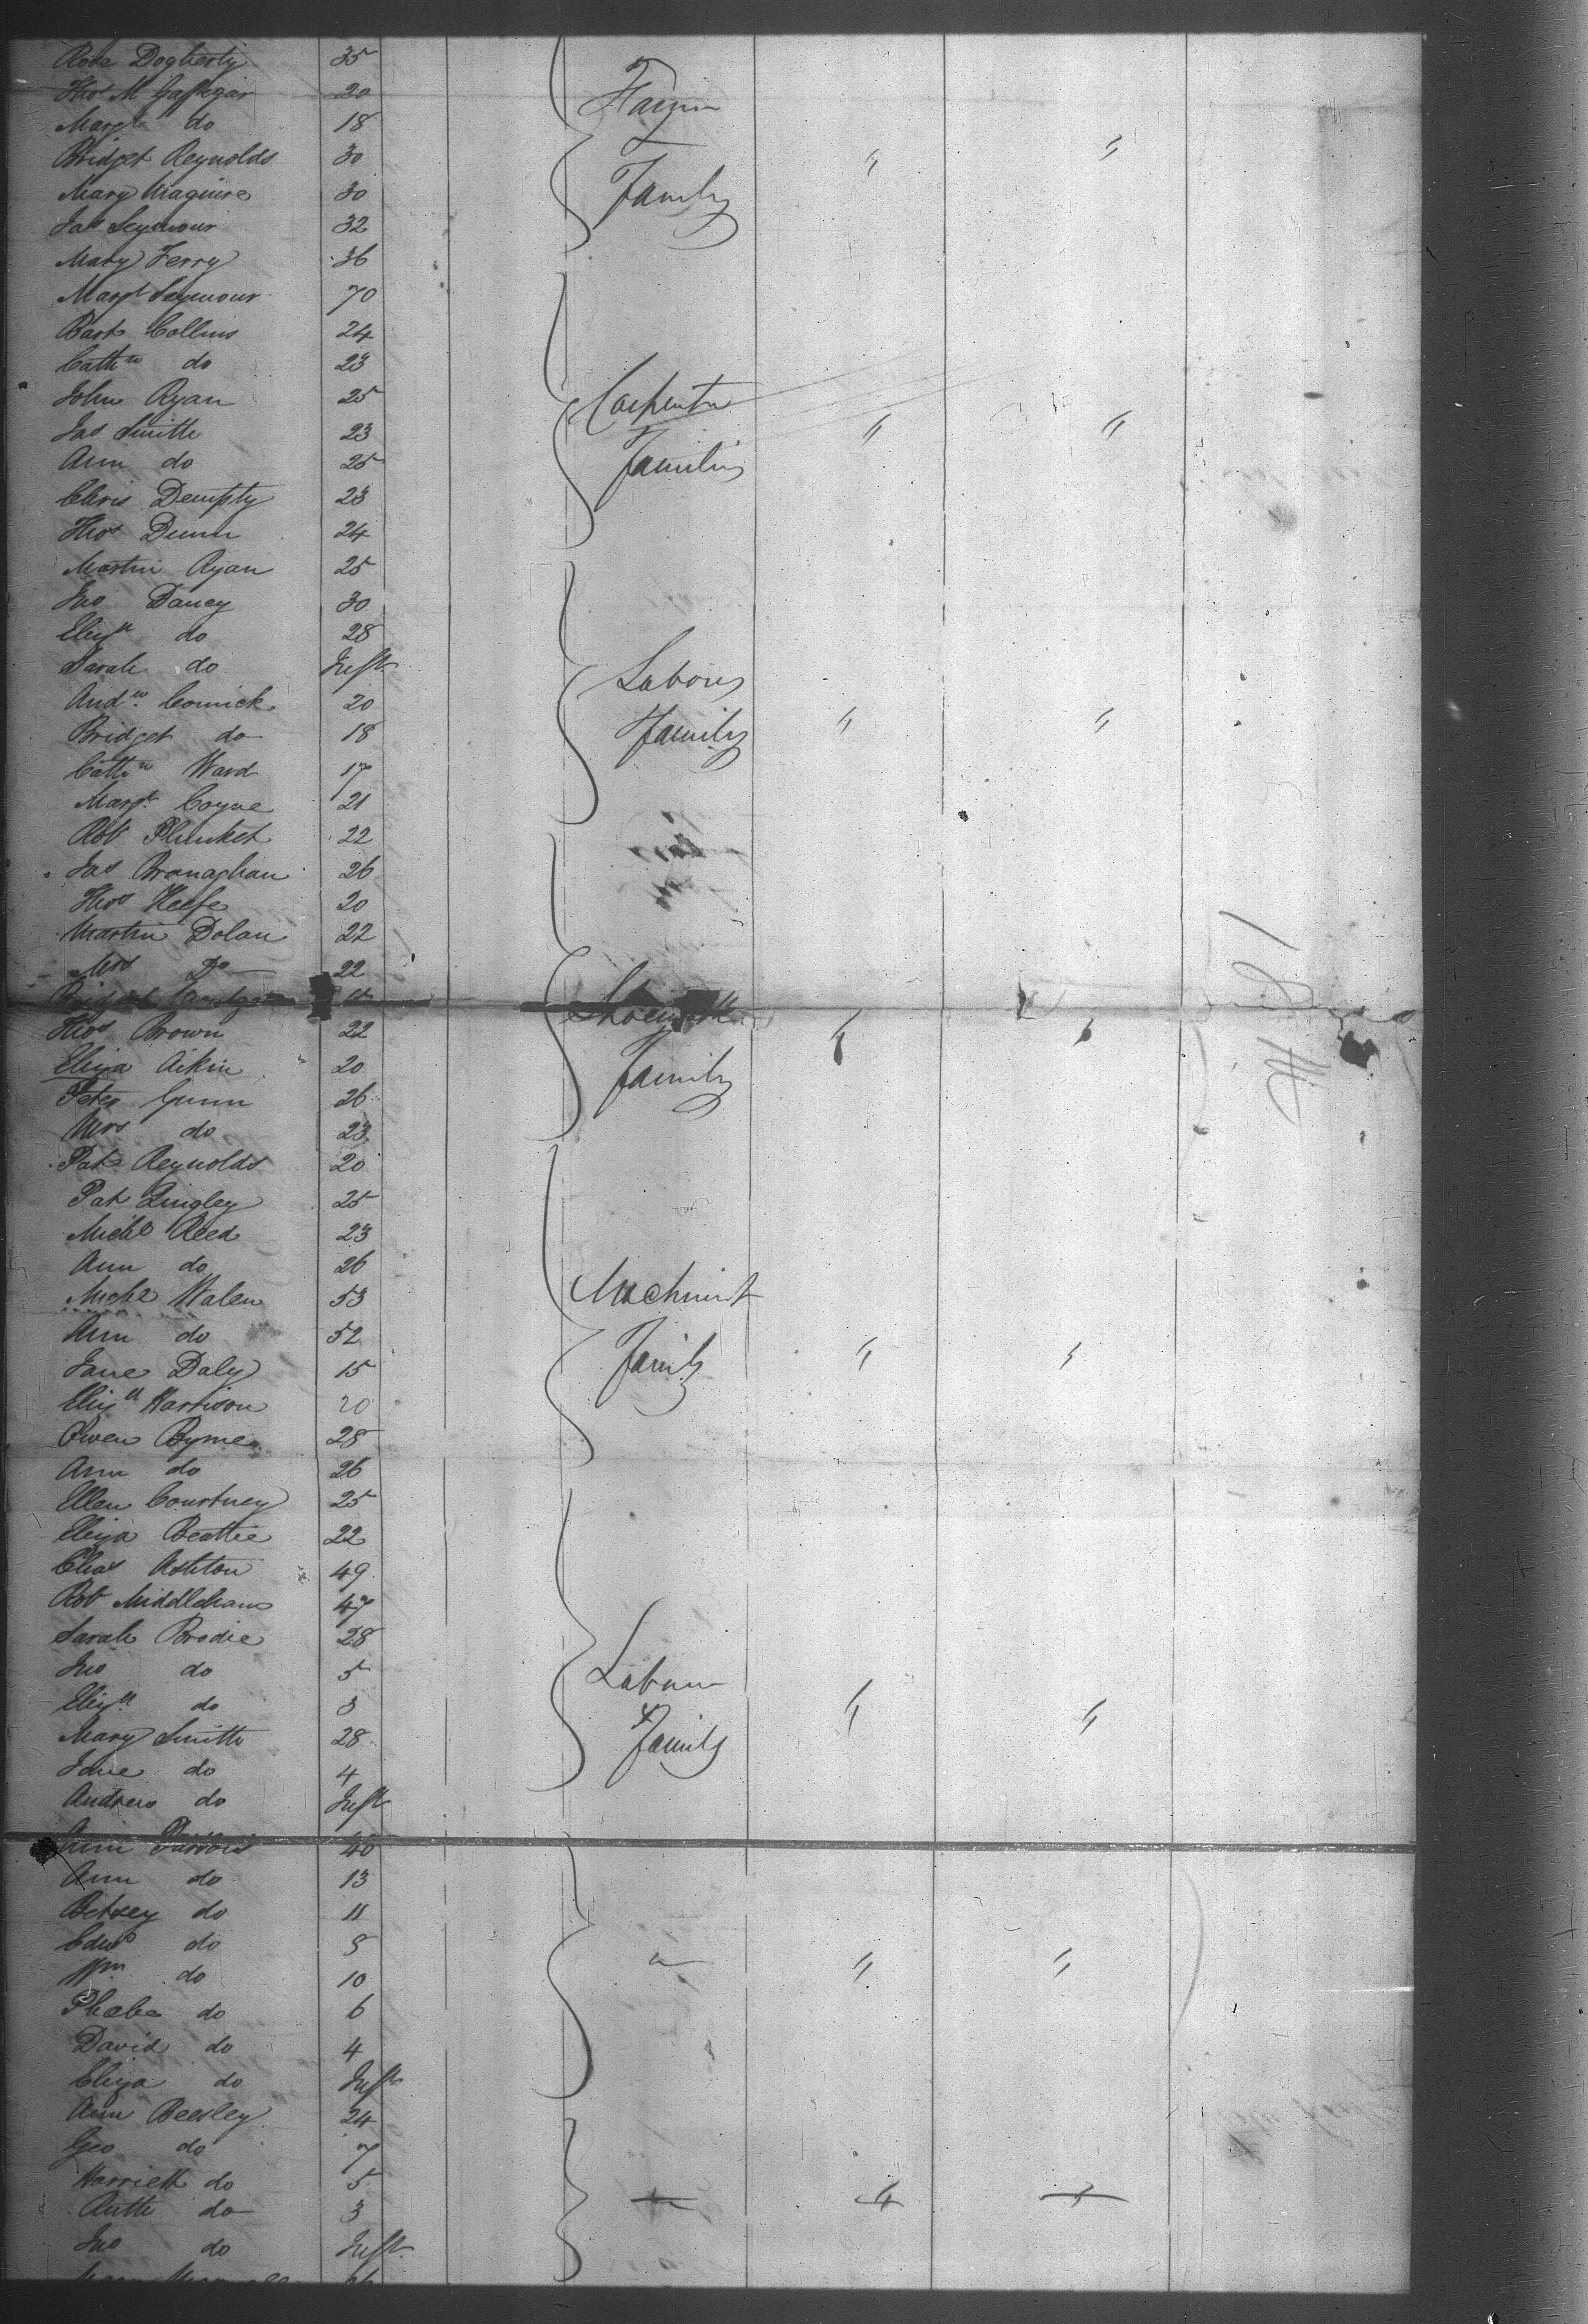 Rose Dogherty 35
Thos M Gaffigan 20
Margt do 18
Bridget Reynolds 30
Mary Maguire 30
Jas Seymour 32
Mary Ferry 36
Margt Seymour 70
Bart Collins 24
Cathn do 23
John Ryan 25
Jas Smith 23
Ann do 25
Chris Dempsty 23
Thos Dunn 24
Martin Ryan 25
Jno Dancy 30
Elizth do 28
Sarah do Inft
Andw Cormick 20
Bridget do 18
Cathn Ward 17
Margt Coyne 21
Rob Plunket 22
Jas Branaghan 26
Thos Keefe 20
Martin Dolan 22
Mrs Do 22
Bridget
Thos Brown 22
Eliza Aikin 20
Peter Gunn 26
Mrs do 23
Pat Reynolds 20
Pat Lingley 25
Michl Reed 23
Ann do 26
Michl Walen 53
Ann do 52
Jane Daly 15
Elizth Harrison 20
Owen Byrne 28
Ann do 26
Ellen Courtney 25
Eliza Beattie 22
Chas Ashton 49
Rob Middleham 47
Sarah Brodie 28
Jno do 5
Elizth do 3
Mary Smith 28
Jane do 4
Andrew do Inft
Ann Parsons 40
Ann do 13
Betsey do 11
Edwd do 8
Wm do 10
Phoebe do 6
David do 4
Eliza do Inft
Ann Beesley 24
Geo do 7
Harriett do 5
Ruth do 3
Jno do Inft
Farmr
Family " "
Carpenter
Families " "
Labours
Family " "
Family " "
Machinist
Family " "
Labour
&
Family " "
" " "
" " "